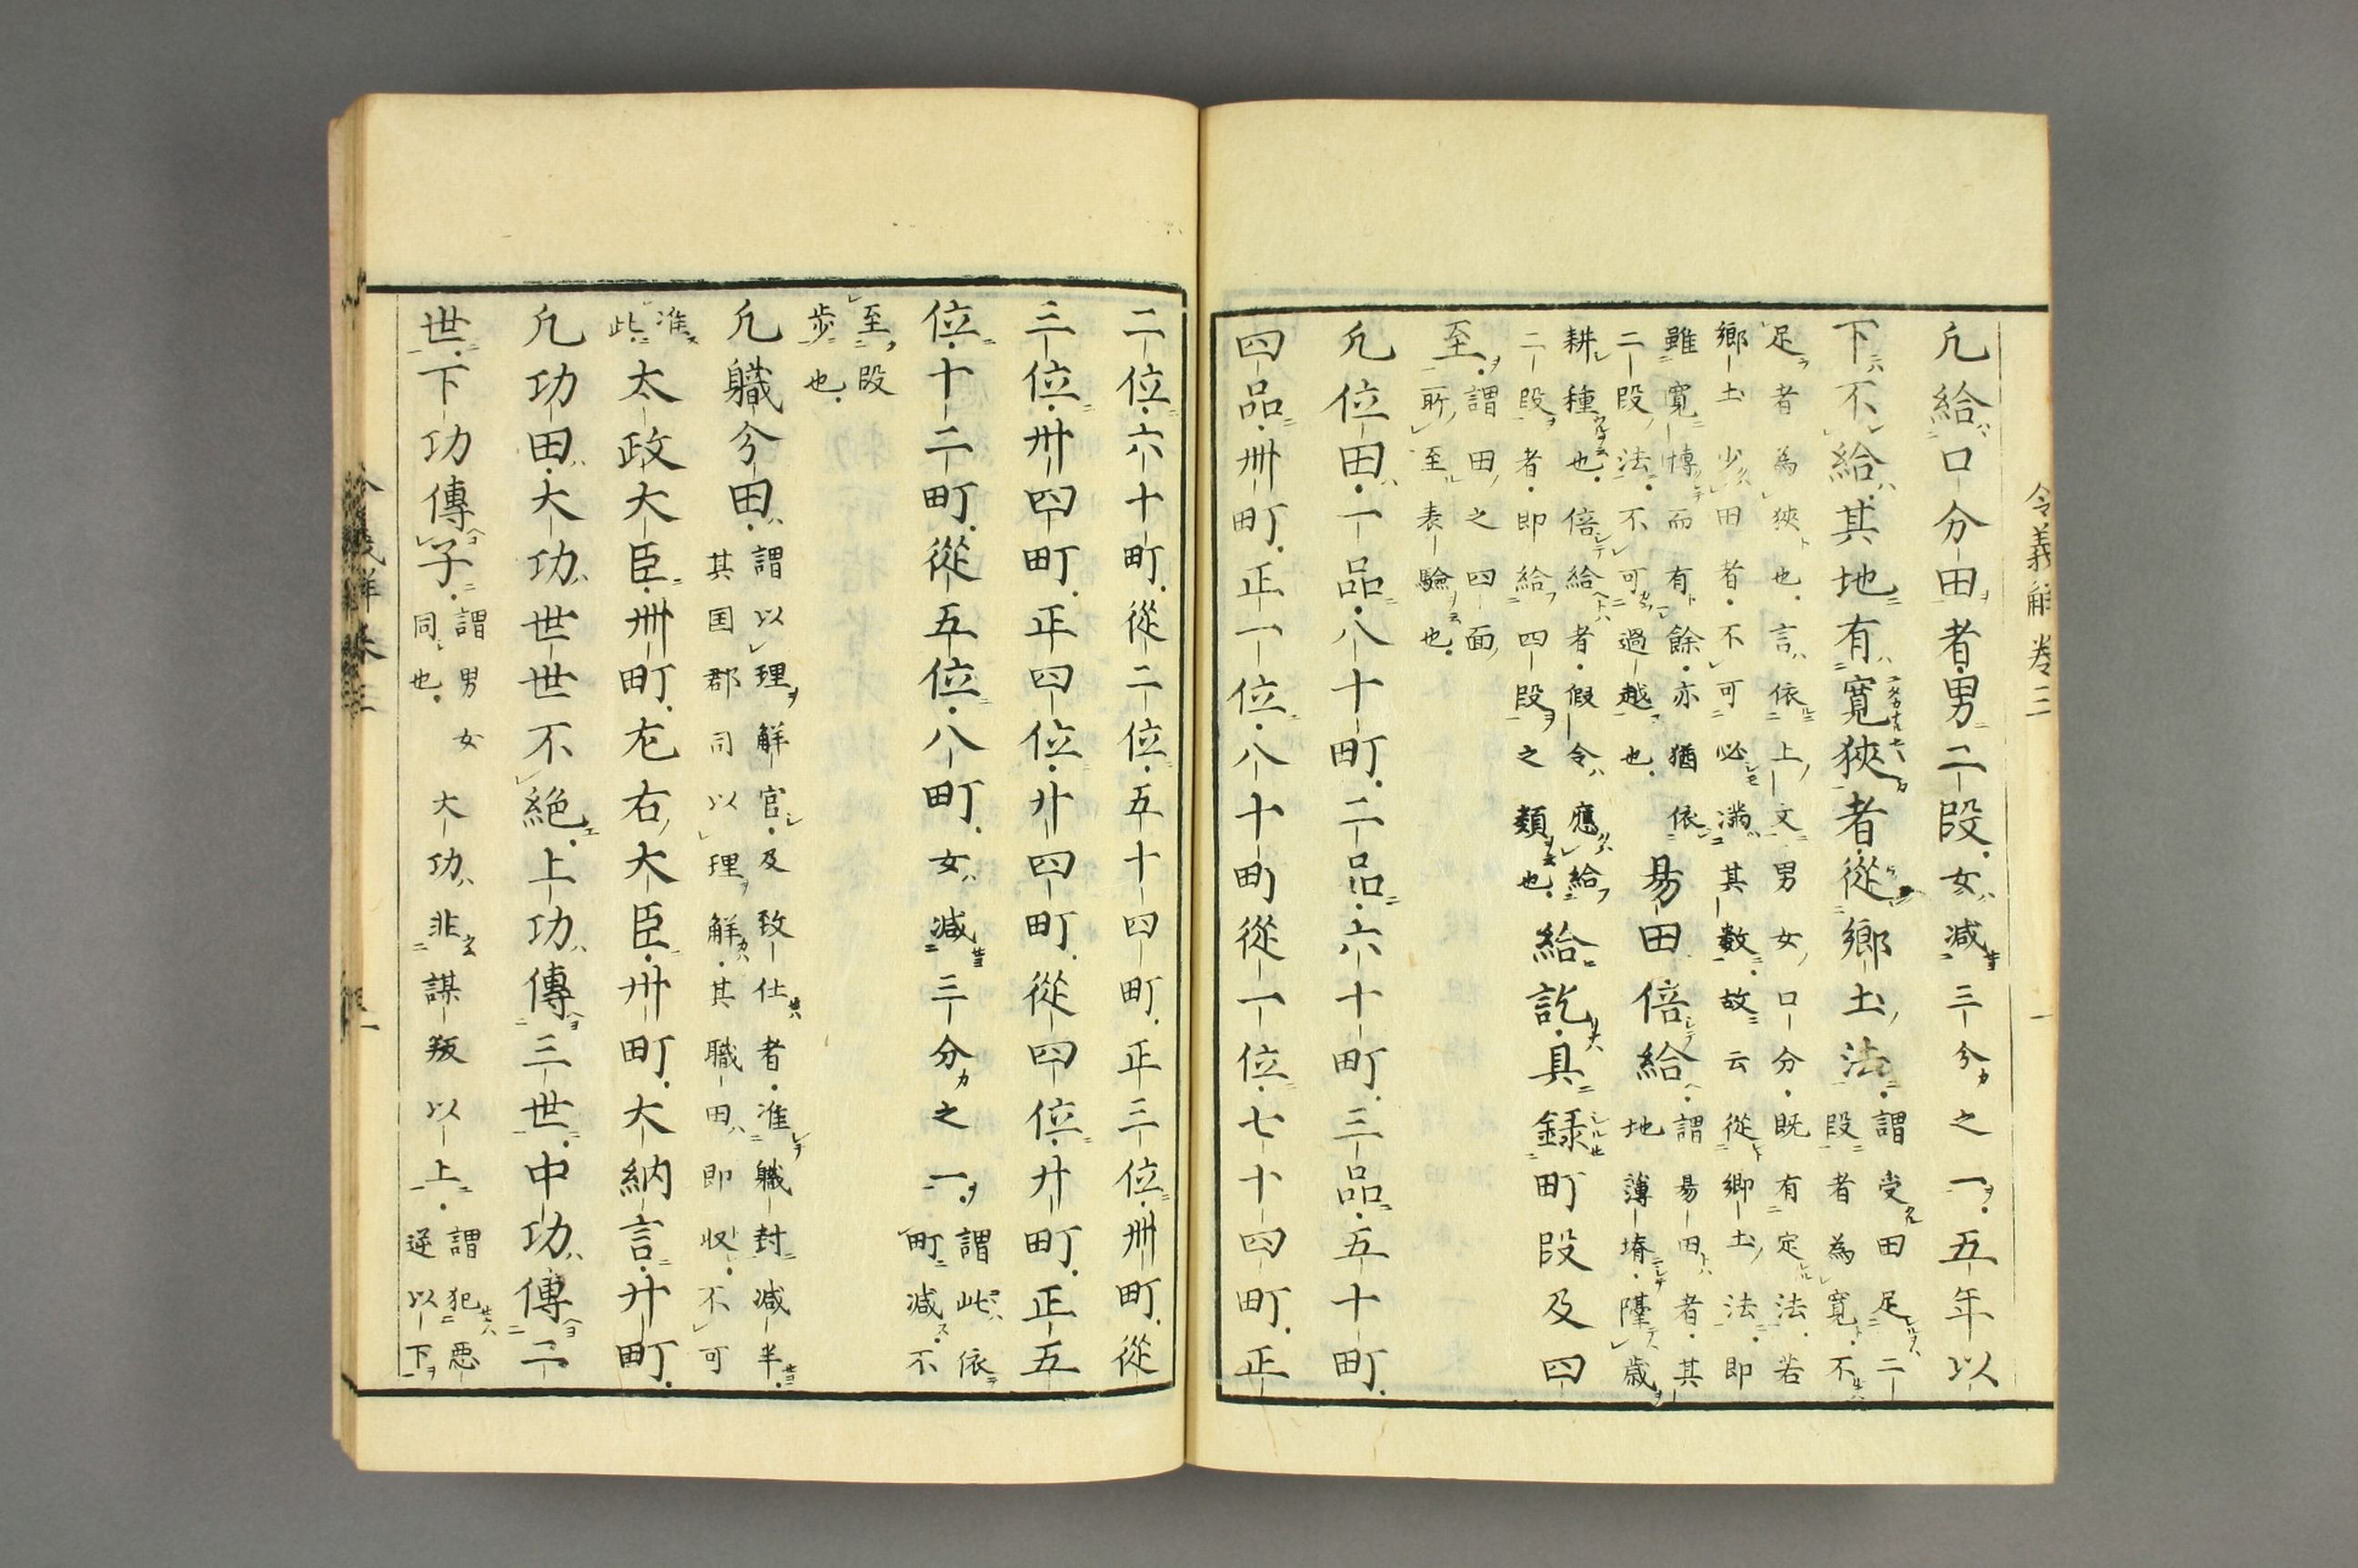 令義解卷三　一
凢給口分田者男二段女減三分之一五年以
下不給其地有寛狹者從鄉土法謂受田足二
段者為寛不
足者為狹也言依上文男女口分既有定法若
鄉土少田者不可必滿其數故云從鄉土法即
雖寛博而有餘亦猶依
二段法不可過越也
易田倍給謂易田者其
地薄塉隔歳
耕種也倍給者假令應給
二段者即給四段之類也
給訖具録町段及四
至謂田之四面
所至表驗也
凢位田一品八十町二品六十町三品五十町
四品卌町正一位八十町從一位七十四町正
二位六十町從二位五十四町正三位卌町從
三位卅四町正四位廿四町從四位廿町正五
位十二町從五位八町女減三分之一謂此依
町減不
至段
歩也
凢職分田謂以理解官及致仕者准職封減半
其国郡司以理解其職田即収不可
准
此
太政大臣卌町左右大臣卅町大納言廿町
凢功田大功世世不絶上功傳三世中功傳二
世下功傳子謂男女
同也
大功非謀叛以上謂犯惡
逆以下